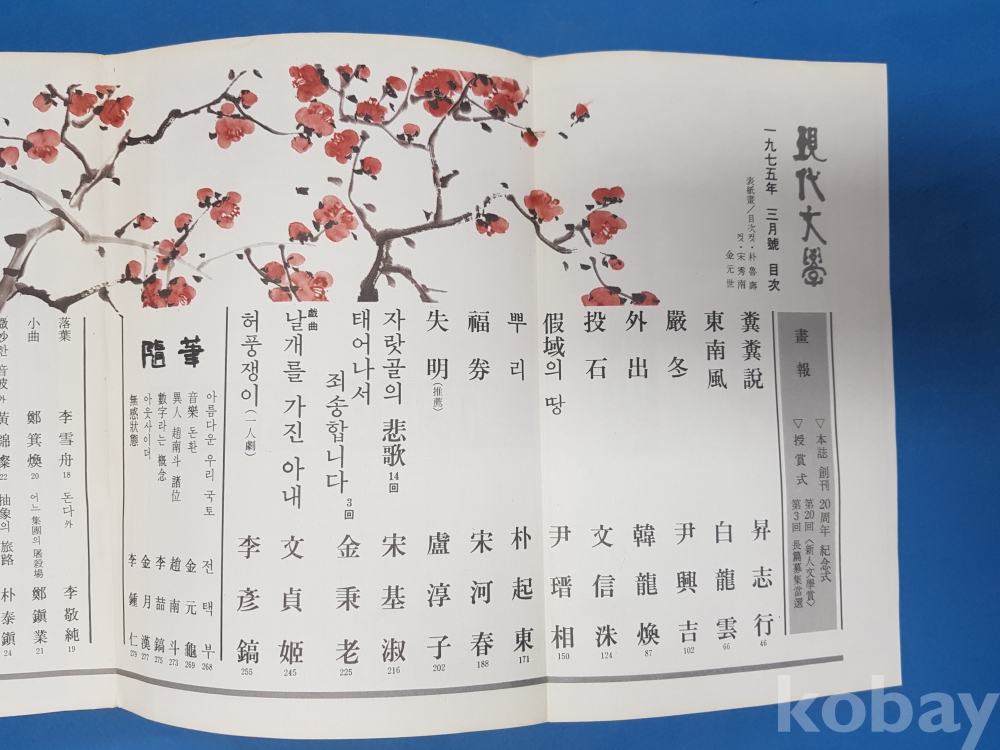 現代文學
一九七五年 三月號 目次
表紙畫／目次컷・朴魯壽
컷・宋秀南
金元世
畫報
▽本誌 創刊 20周年 紀念式
▽授賞式 第20回〈新人文學賞〉
第3回 長篇募集當選
糞糞說 昇志行 46
東南風 白龍雲 66
嚴冬 尹興吉 102
外出 韓龍煥 87
投石 文信洙 124
假域의 땅 尹瑨相 150
뿌리 朴起東 171
福券 宋河春 188
失明(推薦) 盧淳子 202
자랏골의 悲歌 14回 宋基淑 216
태어나서
죄송합니다 3回 金秉老 225
戱曲
날개를 가진 아내 文貞姬 245
허풍쟁이(一人劇) 李彥鎬 255
隨筆
아름다운 우리 국토 전택부 268
音樂 돈환 金元龜 269
異人 趙南斗 諸位 趙南斗 273
數字라는 槪念 李喆鎬 275
아웃사이더 金月漢 277
無感狀態 李鍾仁 279
落葉 李雪舟 18 돈다外 李敬純 19
小曲 鄭箕煥 20 어느 集團의 屠殺場 鄭鎭業 21
微妙한 音波外 黃錦燦 22 抽象의 旅路 朴泰鎭 24
kobay